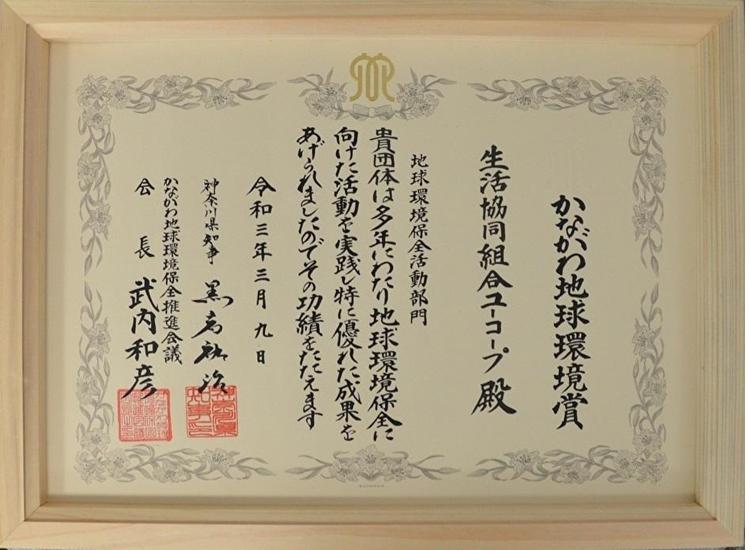 かながわ地球環境賞
生活協同組合ユーコープ殿
地球環境保全活動部門
貴団体は多年にわたり地球環境保全に
向けた活動を実践し特に優れた成果を
あげられましたのでその功績をたたえます
令和三年三月九日
神奈川県知事 黒岩祐治
かながわ地球環境保全推進会議
会長 武内和彦